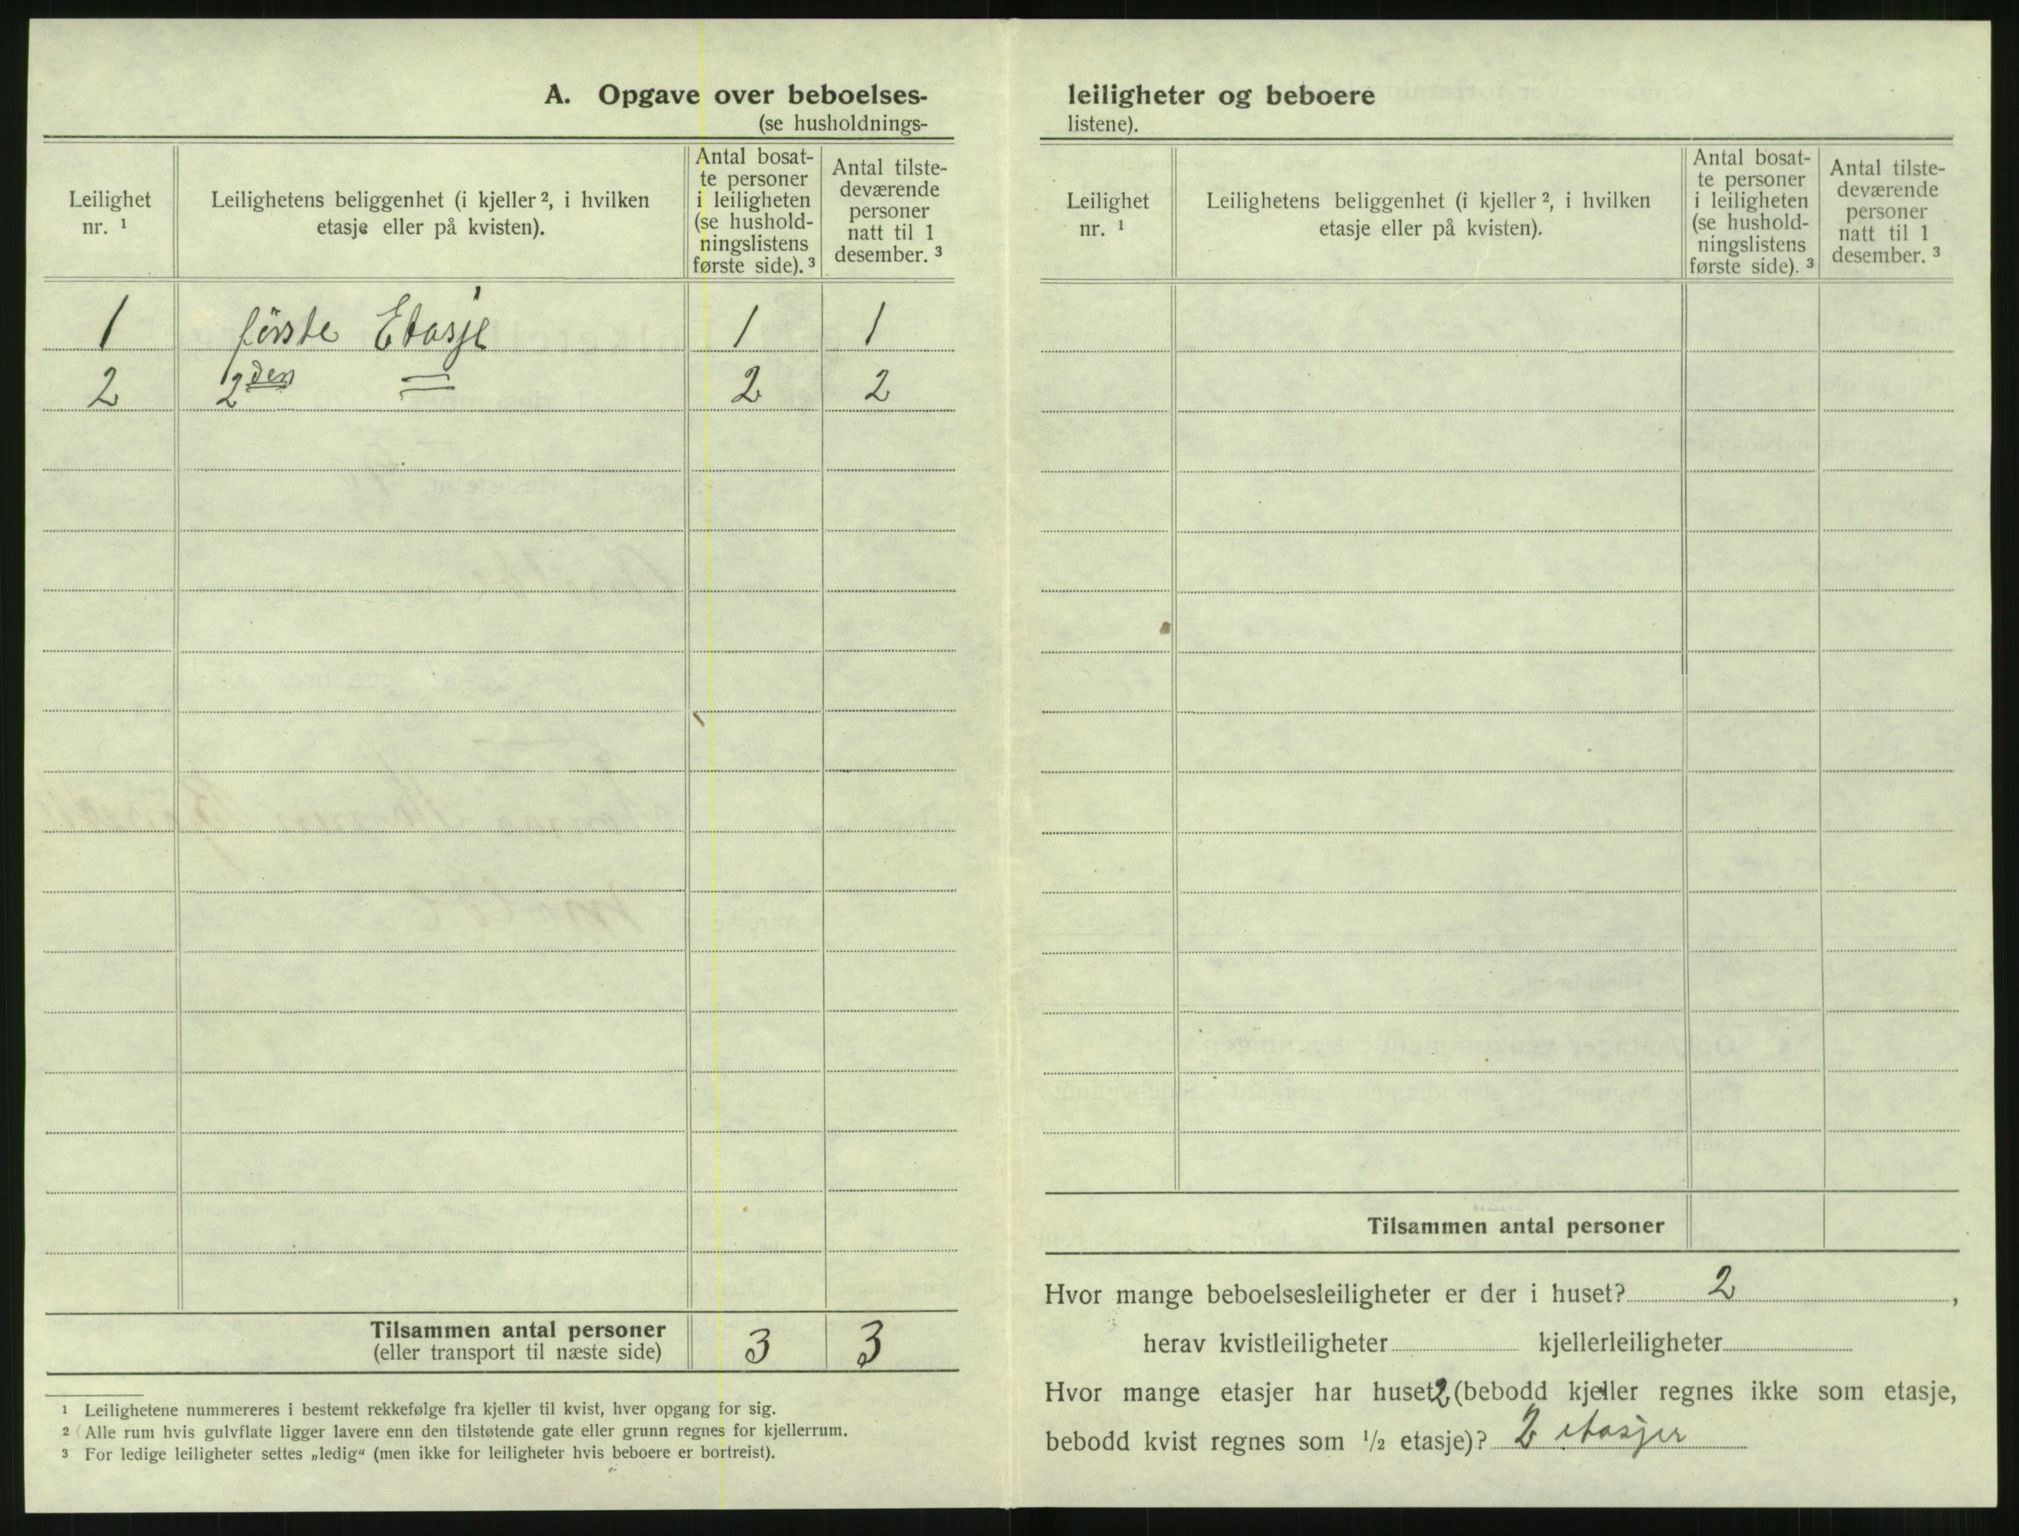 A. Opgave over beboelses-
(se husholdnings-
Leilighet nr. ¹
Leilighetens beliggenhet (i kjeller ², i hvilken etasje eller på kvisten).
Antal bosat-
te personer
i leiligheten
(se hushold-
ningslistens
første side). ³
Antal tilste-
deværende
personer
natt til 1
desember. ³
1 første Etasje 1 1
2 2den = 2 2
Tilsammen antal personer 3 3
(eller transport til næste side)
¹ Leilighetene nummereres i bestemt rekkefølge fra kjeller til kvist, hver opgang for sig.
² Alle rum hvis gulvflate ligger lavere enn den tilstøtende gate eller grunn regnes for kjellerrum.
³ For ledige leiligheter settes „ledig“ (men ikke for leiligheter hvis beboere er bortreist).
leiligheter og beboere
listene).
Leilighet nr. ¹
Leilighetens beliggenhet (i kjeller ², i hvilken etasje eller på kvisten).
Antal bosat-
te personer
i leiligheten
(se hushold-
ningslistens
første side). ³
Antal tilste-
deværende
personer
natt til 1
desember. ³
Tilsammen antal personer
Hvor mange beboelsesleiligheter er der i huset? 2,
herav kvistleiligheter kjellerleiligheter
Hvor mange etasjer har huset 2 (bebodd kjeller regnes ikke som etasje,
bebodd kvist regnes som ½ etasje)? 2 etasjer